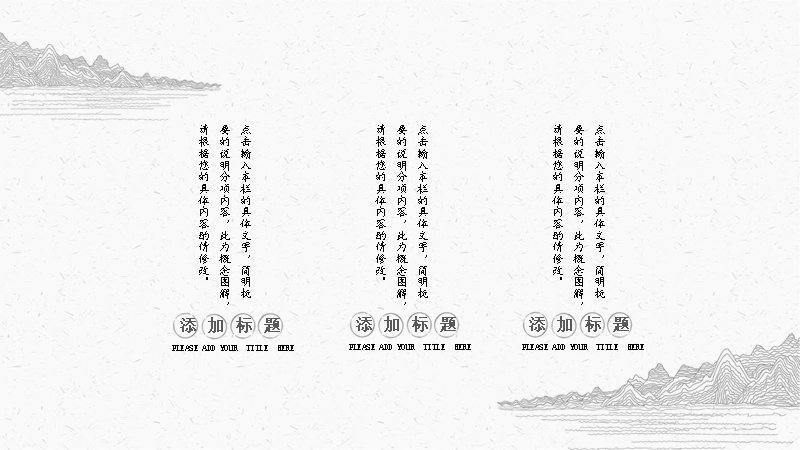 点击输入本栏的具体文字，简明扼
要的说明分项内容，此为概念图解，
请根据您的具体内容酌情修改。
添加标题
PLEASE ADD YOUR TITLE HERE
点击输入本栏的具体文字，简明扼
要的说明分项内容，此为概念图解，
请根据您的具体内容酌情修改。
添加标题
PLEASE ADD YOUR TITLE HERE
点击输入本栏的具体文字，简明扼
要的说明分项内容，此为概念图解，
请根据您的具体内容酌情修改。
添加标题
PLEASE ADD YOUR TITLE HERE